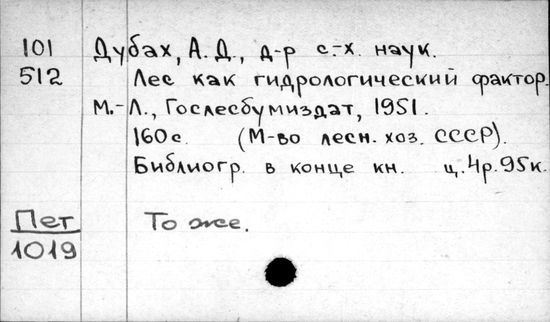 101 Дубах, А.Д., д-р с.-х. наук.
512 Лес как гидрологический фактор.
М.-Л., Гослесбумиздат, 1951.
160с. (М-во лесн. хоз. СССР).
Библиогр. в конце кн. ц. 4р. 95к.
Пет То же.
1019